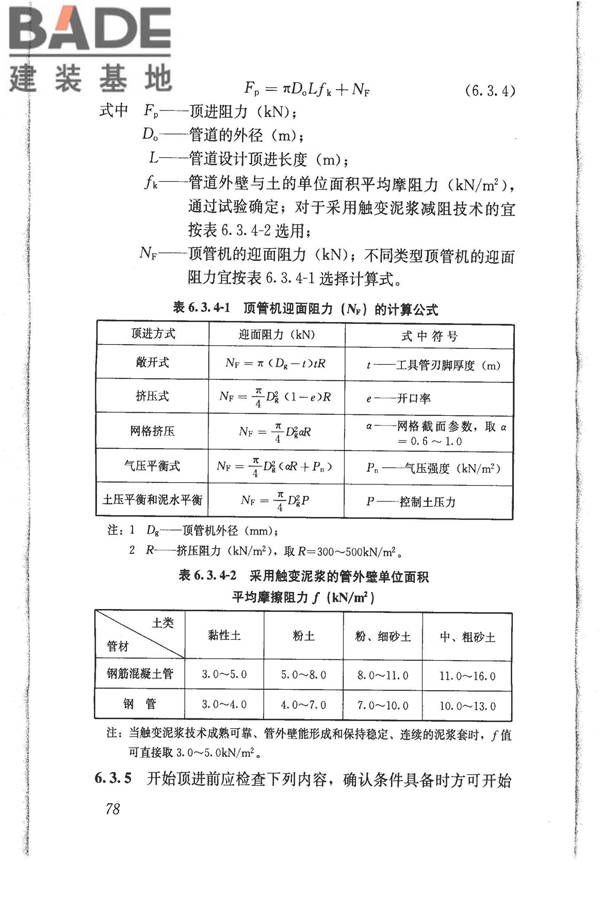 BADE
建装基地
F_p = πD_oLf_k + N_F (6.3.4)
式中 F_p——顶进阻力（kN）；
D_o——管道的外径（m）；
L——管道设计顶进长度（m）；
f_k——管道外壁与土的单位面积平均摩阻力（kN/m²），
通过试验确定；对于采用触变泥浆减阻技术的宜
按表 6.3.4-2 选用；
N_F——顶管机的迎面阻力（kN）；不同类型顶管机的迎面
阻力宜按表 6.3.4-1 选择计算式。
表 6.3.4-1 顶管机迎面阻力（N_F）的计算公式
顶进方式 迎面阻力（kN） 式中符号
敞开式 N_F = π（D_g－t）tR t——工具管刃脚厚度（m）
挤压式 N_F = π/4 D_g²（1－e）R e——开口率
网格挤压 N_F = π/4 D_g²αR α——网格截面参数，取 α
= 0.6～1.0
气压平衡式 N_F = π/4 D_g²（αR＋P_n） P_n——气压强度（kN/m²）
土压平衡和泥水平衡 N_F = π/4 D_g²P P——控制土压力
注：1 D_g——顶管机外径（mm）；
2 R——挤压阻力（kN/m²），取 R=300～500kN/m²。
表 6.3.4-2 采用触变泥浆的管外壁单位面积
平均摩擦阻力 f（kN/m²）
土类
管材 黏性土 粉土 粉、细砂土 中、粗砂土
钢筋混凝土管 3.0～5.0 5.0～8.0 8.0～11.0 11.0～16.0
钢 管 3.0～4.0 4.0～7.0 7.0～10.0 10.0～13.0
注：当触变泥浆技术成熟可靠、管外壁能形成和保持稳定、连续的泥浆套时，f 值
可直接取 3.0～5.0kN/m²。
6.3.5 开始顶进前应检查下列内容，确认条件具备时方可开始
78